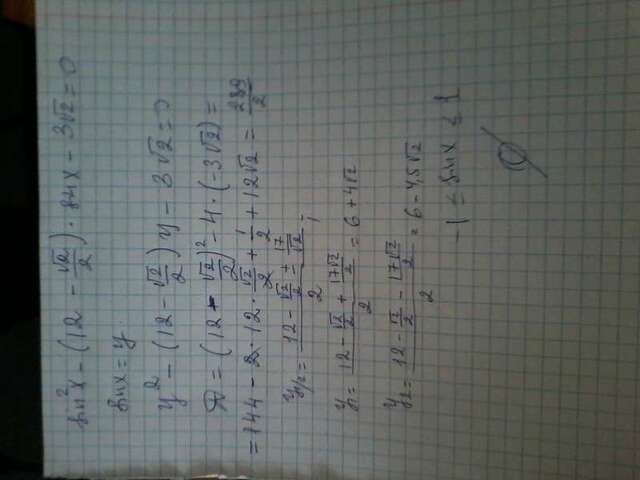 sin²x − (12 − √2/2) · sin x − 3√2 = 0
sin x = y
y² − (12 − √2/2) y − 3√2 = 0
D = (12 − √2/2)² − 4 · (−3√2) =
= 144 − 2 · 12 · √2/2 + 1/2 + 12√2 = 289/2
y1/2 = (12 − √2/2 ± 17/√2)/2 ;
y1 = (12 − √2/2 + 17√2/2)/2 = 6 + 4√2
y2 = (12 − √2/2 − 17√2/2)/2 = 6 − 4,5√2
−1 ≤ sin x ≤ 1
∅